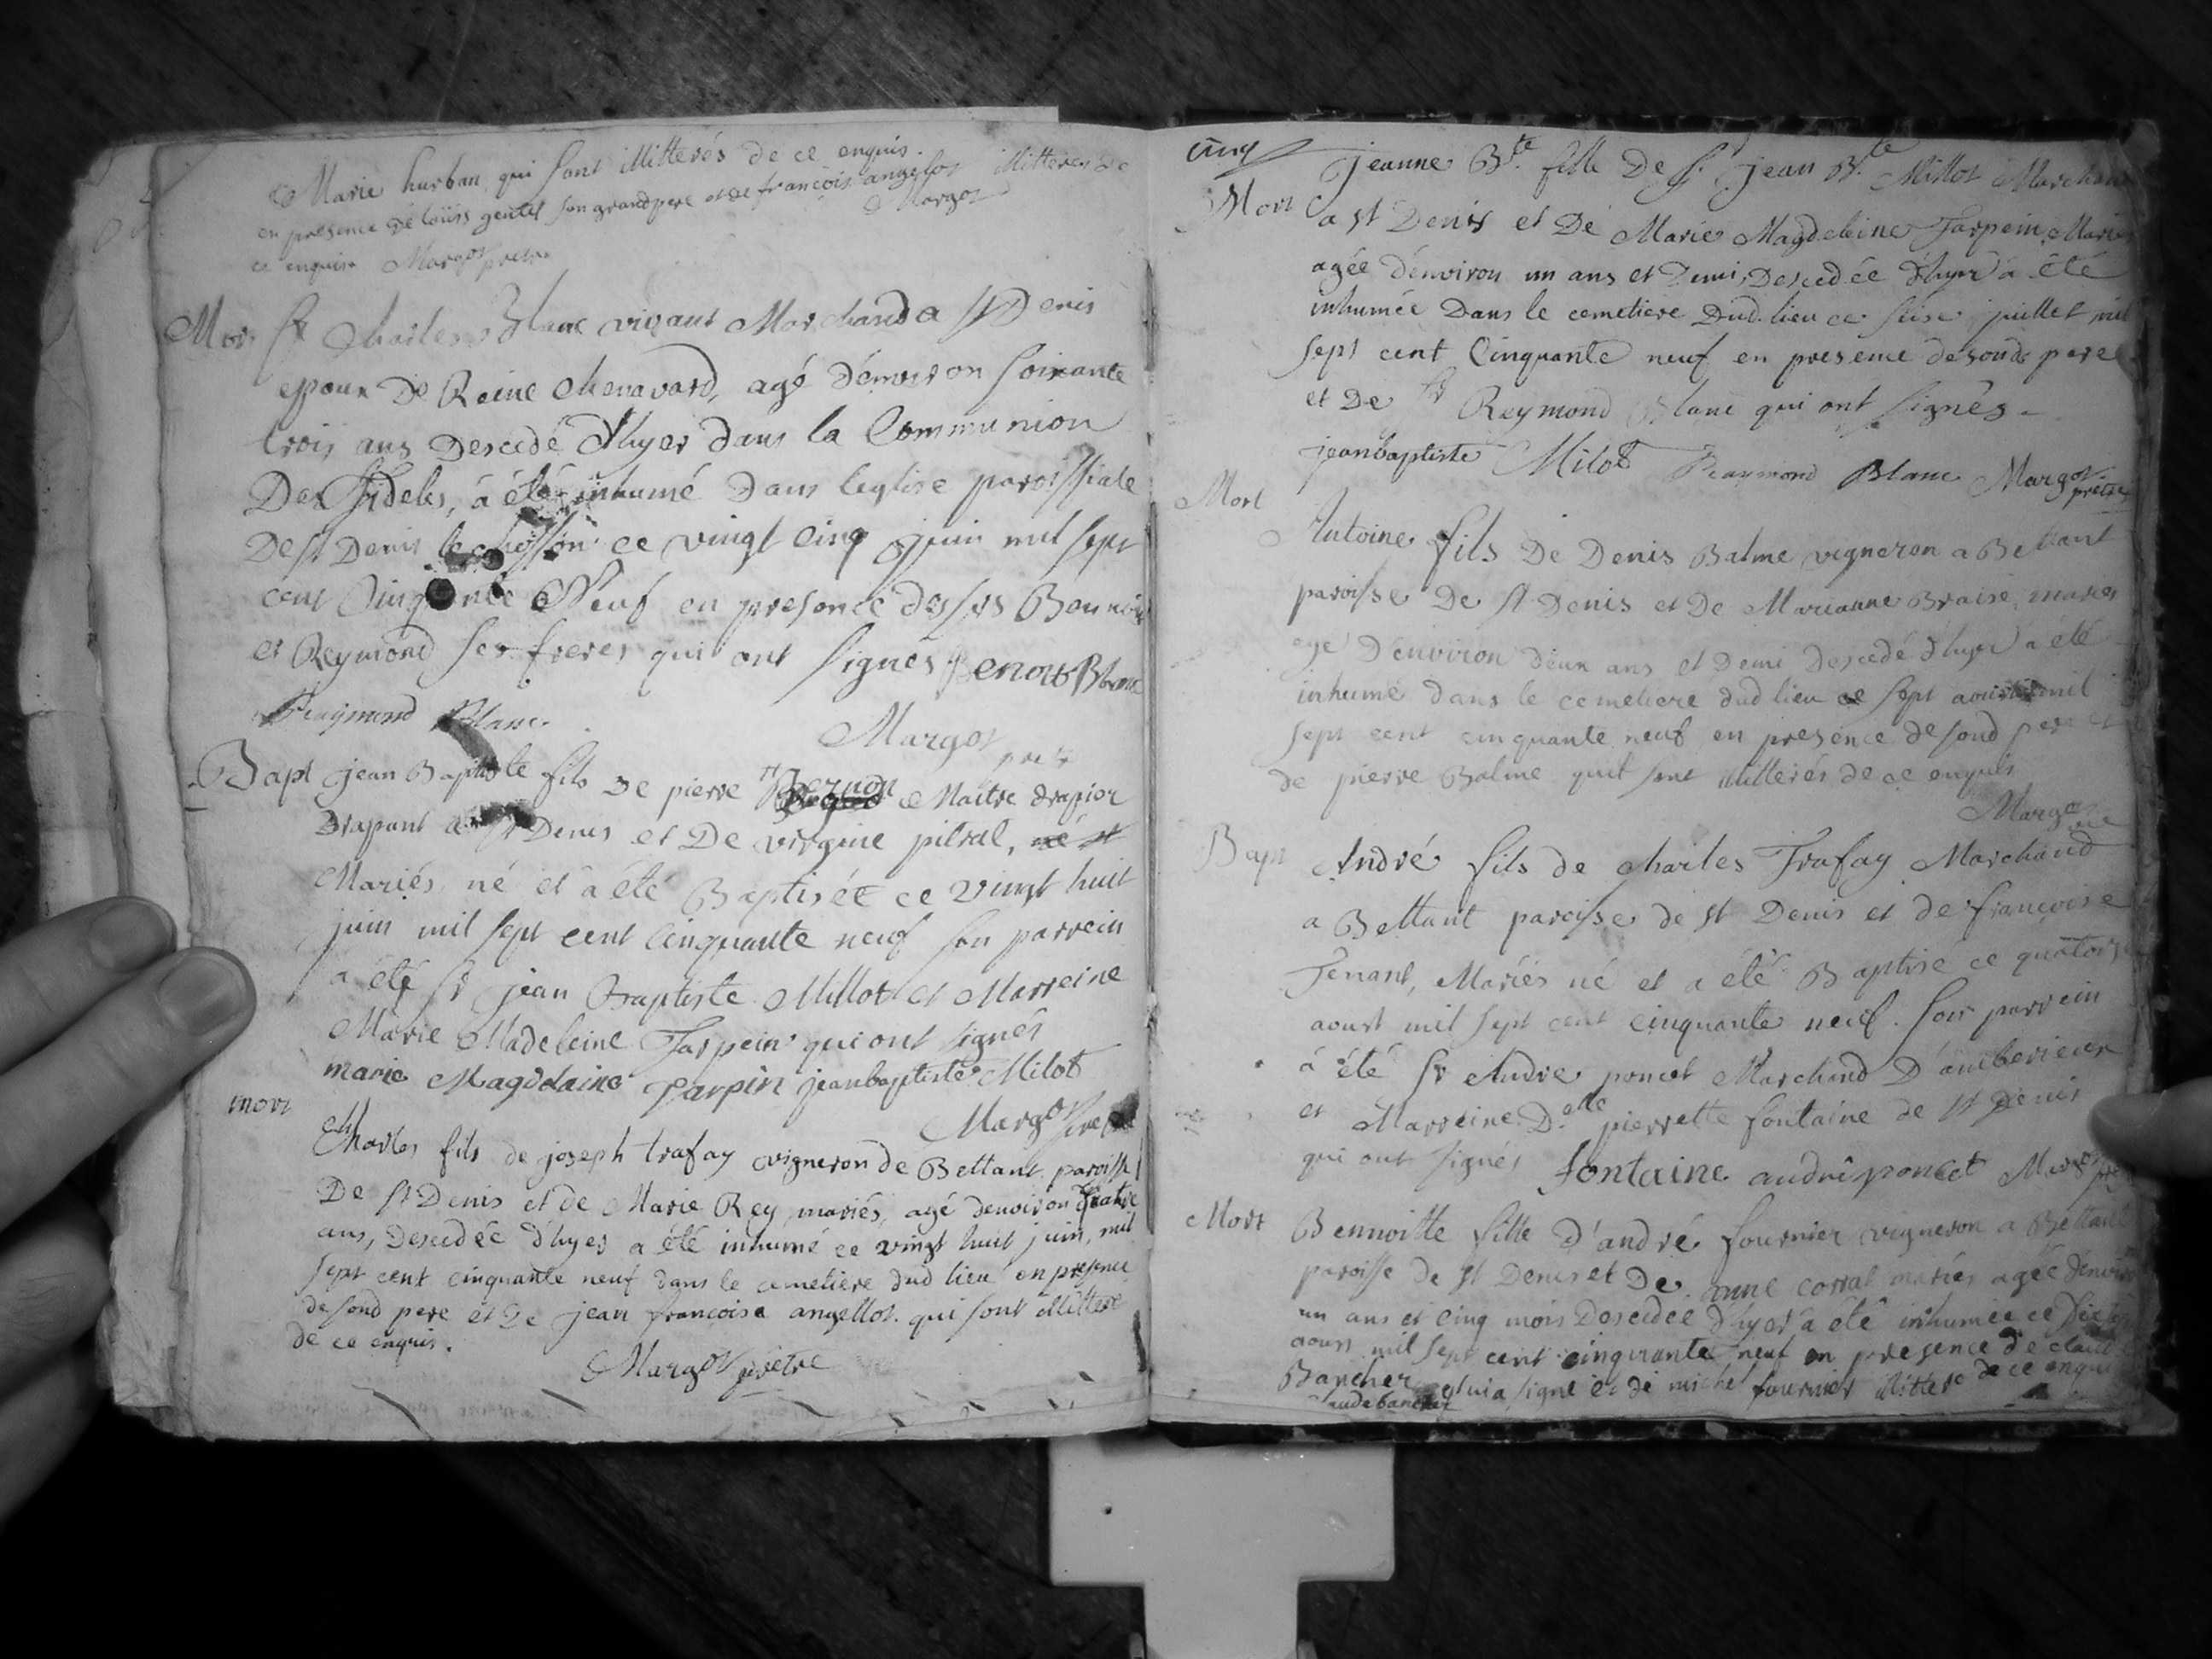 Marie hurban qui sont illitterés de ce enquis.
en presence de loüis gentet son grandpere et de françois angelot illitteres de
Margot
ce enquis Margot pretre
Mort Sr Charles Blanc vivant Marchand a St Denis
epoux De Reine Chenavard, agé d'environ soixante
trois ans Descedé d'hyer dans la Communion
Des fideles, à été inhumé Dans leglise paroissiale
De St Denis le ce vingt cinq juin mil sept
cent Cinquante Neuf en presence des srs Bennoit
et Reymond ses freres qui ont signés Benoit Blanc
Raymond Blanc
Margot
pretre
Bapt jean Baptiste fils de pierre Bernon Maitre drapier
Drapant a St Denis et De virgine pitral,
Mariés né et a été Baptisée ce vingt huit
juin mil sept cent Cinquante neuf son parrein
a été Sr jean Baptiste Millot et Marreine
Marie Madeleine Tarpein qui ont signés
marie Magdelaine Tarpin jeanbaptiste Milot
Margot pretre
mort Charles fils de joseph trafay vigneron de Bettant paroisse
De St Denis et de Marie Rey mariés, agé denviron quatre
ans, Descedée d'hyer a été inhumé ce vingt huit juin, mil
sept cent cinquante neuf dans le cemetiere dud lieu en presence
de sond pere et De jean françoise angellot. qui sont illittere
de ce enquis.
Margot prêtre
cinq
Mort jeanne Bte fille De Sr jean Bte Millot Marchand
a st Denis et De Marie Magdeleine Tarpein Mariés
agée d'environ un ans et Demi, Descedée d'hyer a été
inhumée Dans le cemetiere Dud. lieu ce seise juillet mil
sept cent Cinquante neuf en presence de sond pere
et De Sr Reymond Blanc qui ont signés.
jeanbaptiste Milot Raymond Blanc Margot
pretre
Mort
Antoine fils De Denis Balme vigneron a Bettant
paroisse De St Denis et De Marianne Braise, mariés
egé D'environ deux ans et Demi Descedé d'hyer a été
inhumé dans le cemetiere dud lieu ce sept aoust mil
sept cent cinquante neuf en presence de sond pere et
de pierre Balme quil sont illitterés de ce enquis
Margot
Bapt André fils de charles Trafay Marchand
a Bettant paroisse de st Denis et de françoise
Tenant, Mariés né et a été Baptisé ce quatorze
aoust mil sept cent cinquante neuf. son parrein
à été Sr Andre poncet Marchand D'amberieux
et Marreine Delle pierrette fontaine de St Denis
qui ont signés fontaine andré poncet Margot
Mort Bennoitte fille d'andré fournier vigneron a Bettant
paroisse de st Denis et De anne corral mariés agée d'environ
un ans et cinq mois Descedee d'hyer a été inhumée ce
aoust mil sept cent cinquante neuf en presence de claude
Bancher qui a signé et de michel fournier illittere de ce enquis
claude bancher